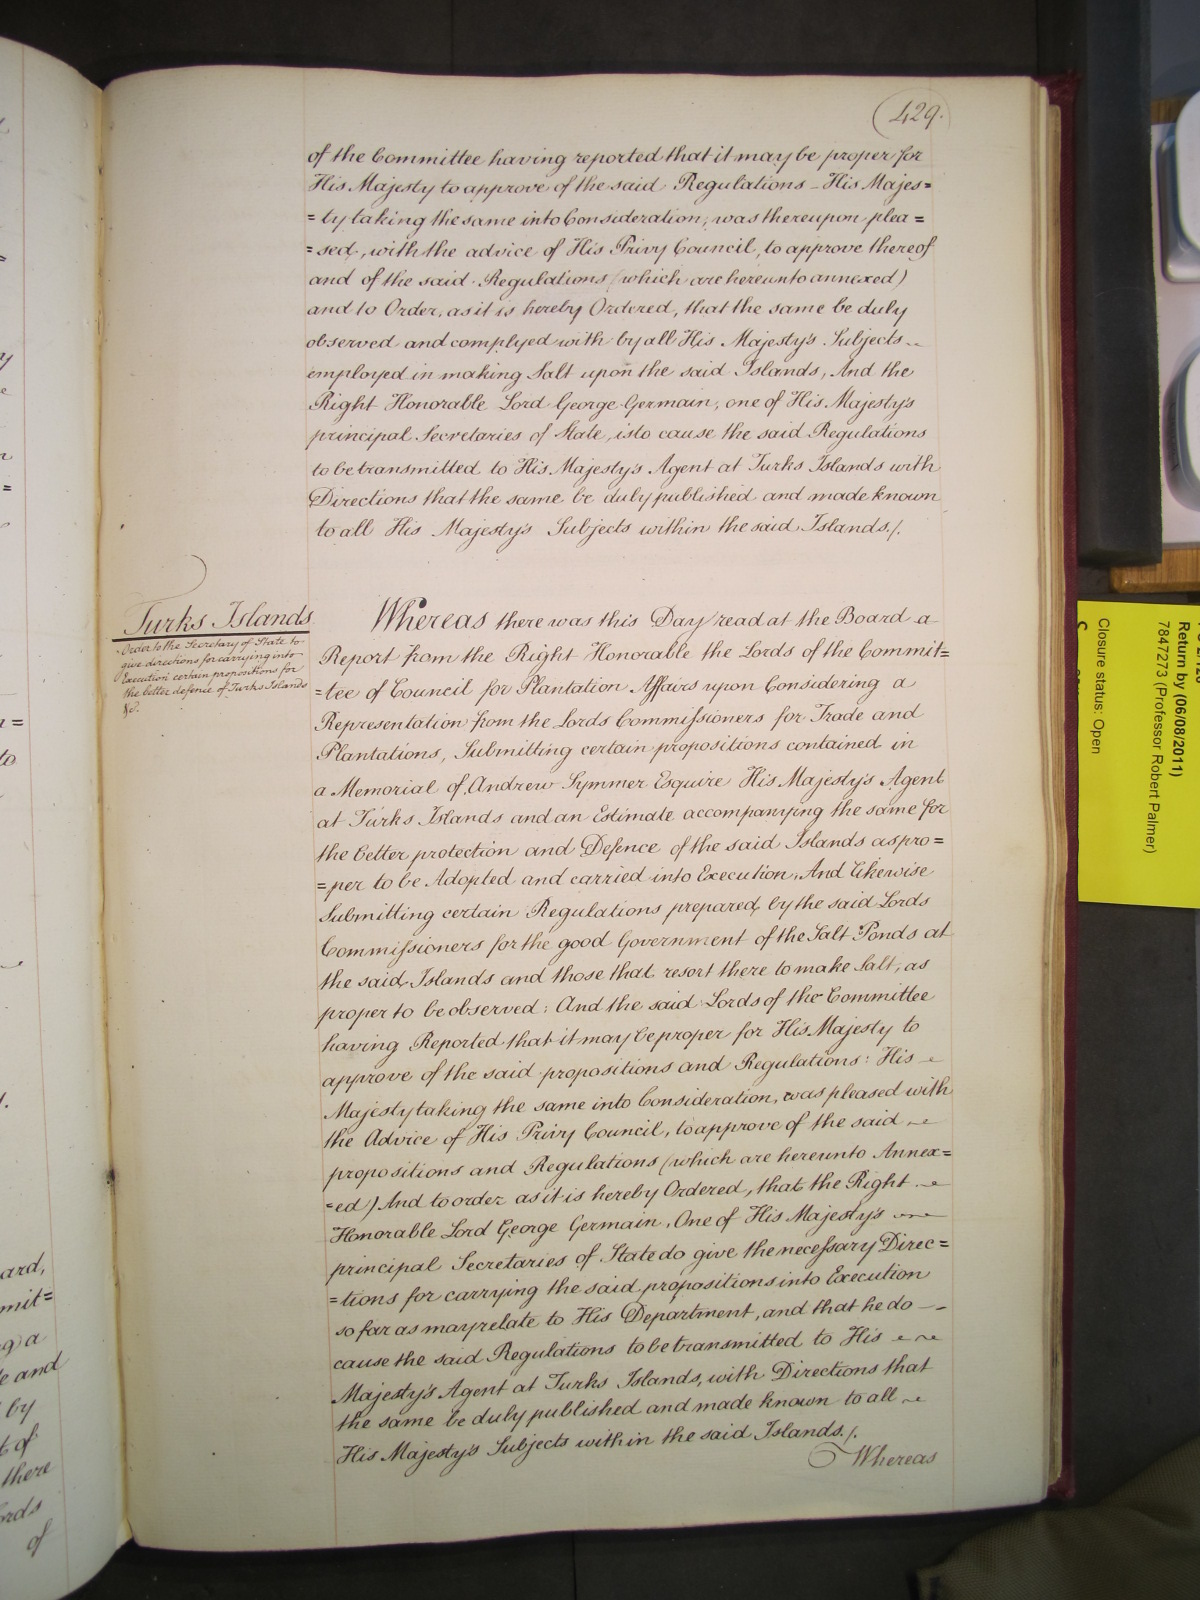 429.
of the Committee having reported that it may be proper for
His Majesty to approve of the said Regulations – His Majes=
=ty taking the same into Consideration, was thereupon plea=
=sed, with the advice of His Privy Council, to approve thereof
and of the said Regulations (which are hereunto annexed)
and to Order, as it is hereby Ordered, that the same be duly
observed and complyed with by all His Majesty's Subjects
employed in making Salt upon the said Islands, And the
Right Honorable Lord George Germain, one of His Majesty's
principal Secretaries of State, is to cause the said Regulations
to be transmitted to His Majesty's Agent at Turks Islands with
Directions that the same be duly published and made known
to all His Majesty's Subjects within the said Islands./.
Turks Islands
Order to the Secretary of State to
give directions for carrying into
execution certain propositions for
the better defence of Turks Islands
&c.
Whereas there was this Day read at the Board a
Report from the Right Honorable the Lords of the Commit=
=tee of Council for Plantation Affairs upon Considering a
Representation from the Lords Commissioners for Trade and
Plantations, Submitting certain propositions contained in
a Memorial of Andrew Symmer Esquire His Majesty's Agent
at Turks Islands and an Estimate accompanying the same for
the better protection and Defence of the said Islands as pro=
=per to be Adopted and carried into Execution, And likewise
Submitting certain Regulations prepared by the said Lords
Commissioners for the good Government of the Salt Ponds at
the said Islands and those that resort there to make Salt, as
proper to be observed: And the said Lords of the Committee
having Reported that it may be proper for His Majesty to
approve of the said propositions and Regulations: His
Majesty taking the same into Consideration, was pleased with
the Advice of His Privy Council, to approve of the said
propositions and Regulations (which are hereunto Annex=
=ed) And to order as it is hereby Ordered, that the Right
Honorable Lord George Germain, One of His Majesty's
principal Secretaries of State do give the necessary Direc=
=tions for carrying the said propositions into Execution
so far as may relate to His Department, and that he do
cause the said Regulations to be transmitted to His
Majesty's Agent at Turks Islands, with Directions that
the same be duly published and made known to all
His Majesty's Subjects within the said Islands./.
Whereas
ard,
mit=
g a
e and
by
t of
there
ords
of
Return by (06/08/2011)
7847273 (Professor Robert Palmer)
Closure status: Open